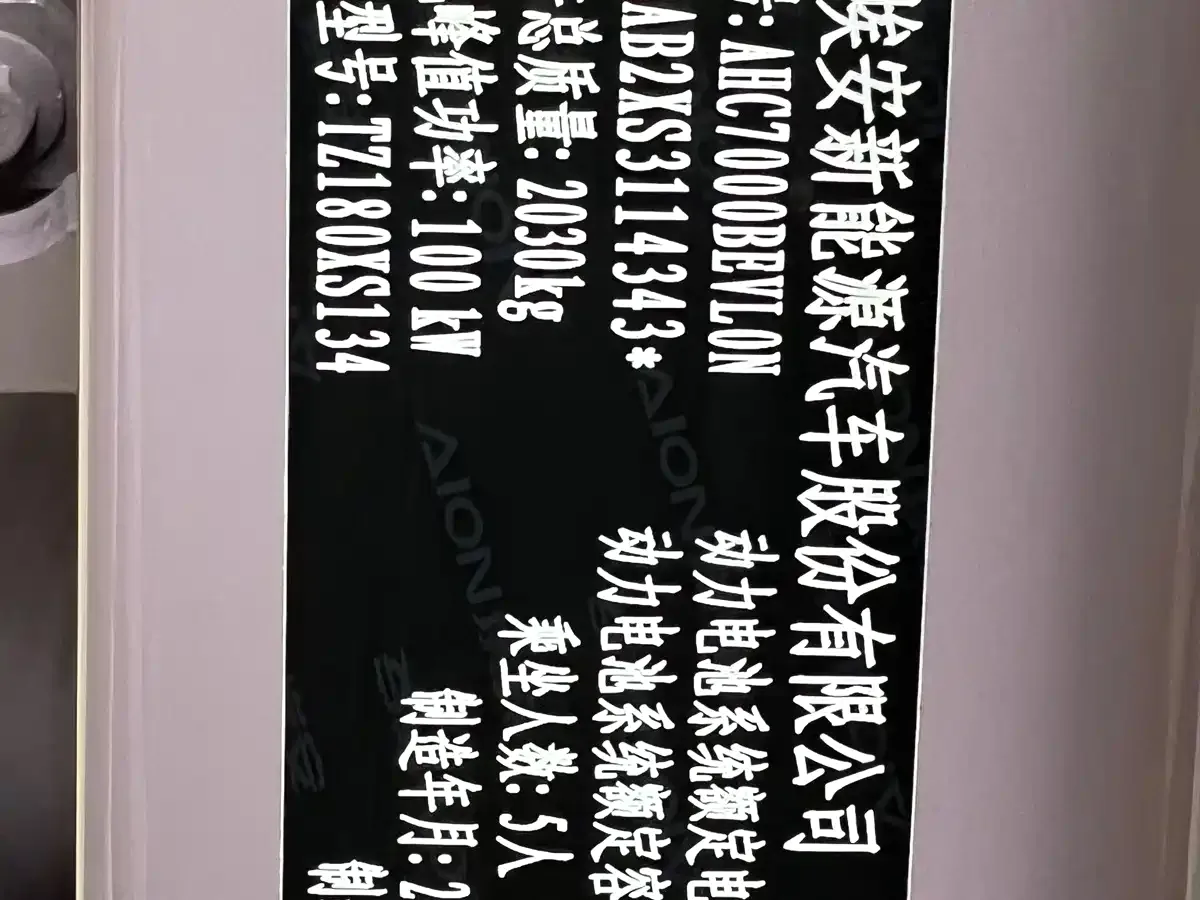 埃安新能源汽车股份有限公司
号: AHC7000BEVL0N 动力电池系统额定电
AB2XS3114343* 动力电池系统额定容
总质量: 2030kg 乘坐人数: 5人
峰值功率: 100 kW 制造年月: 2
型号: TZ180XS134 制
AION
AION